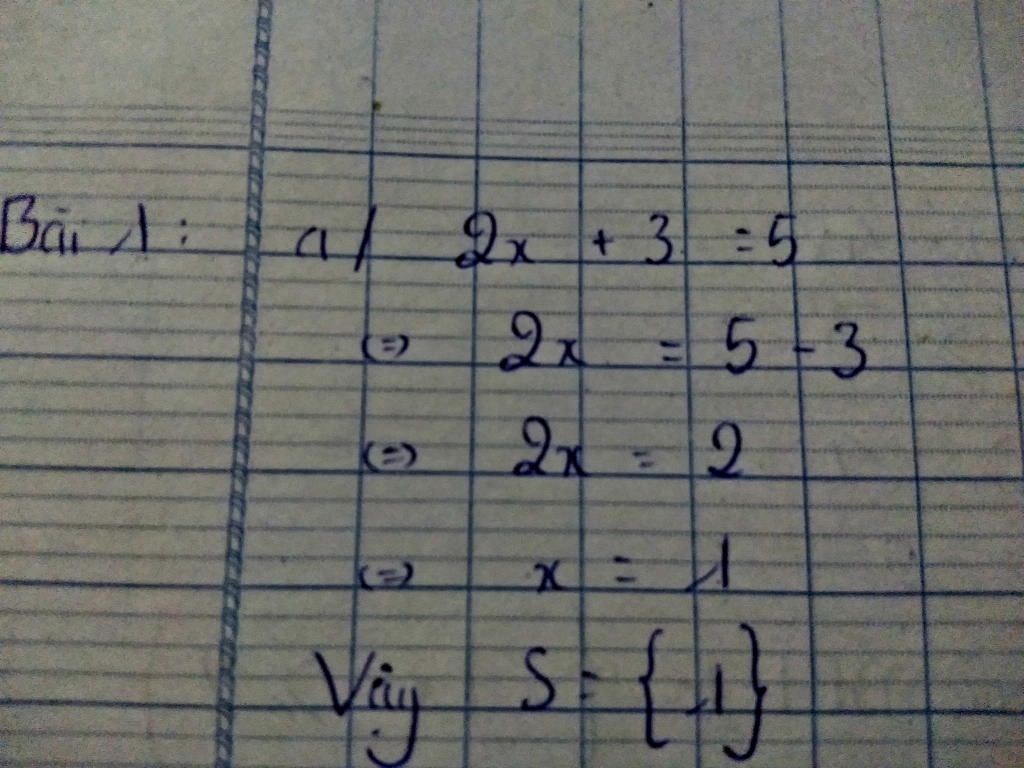 Bài 1: a/ 2x + 3 = 5
⇔ 2x = 5 - 3
⇔ 2x = 2
⇔ x = 1
Vậy S = {1}